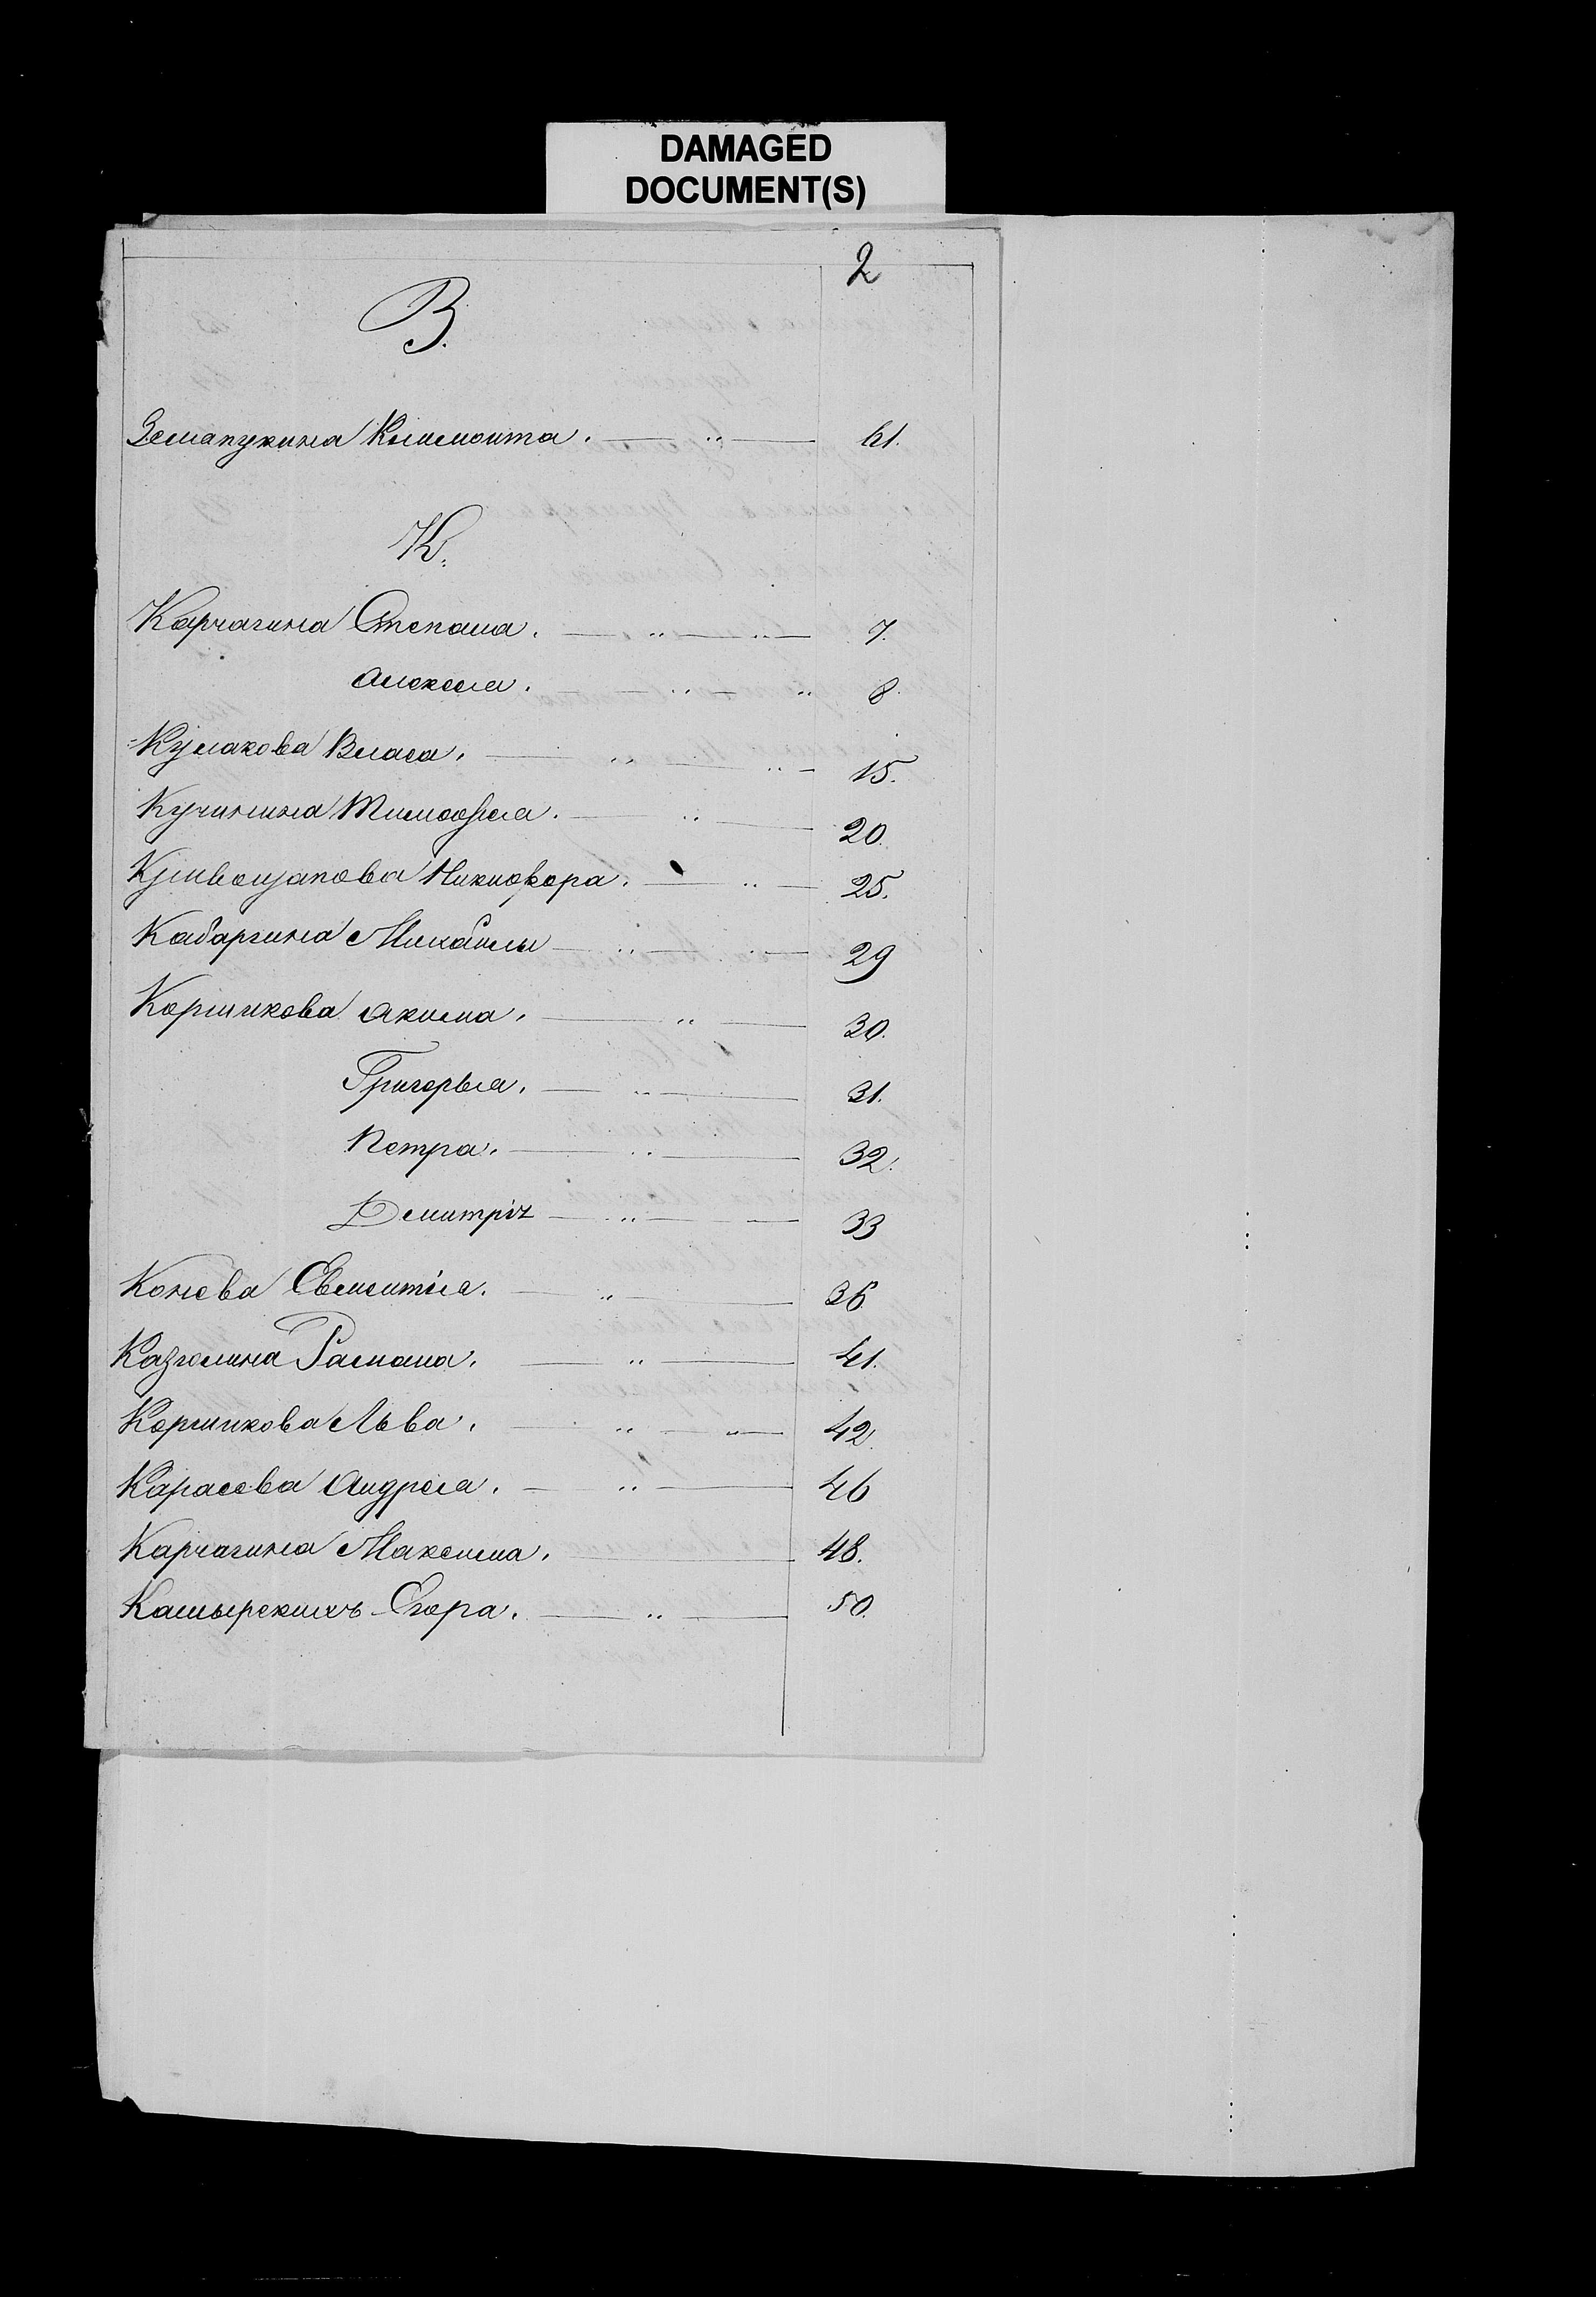 DAMAGED
DOCUMENT(S)
2
З.
Земапухина Климонта. — " — 61.
К.
Карчагина Степана. — " — " — 7.
Алексея. — " — " 8.
Кулакова Власа. — " — " — 15.
Кучинина Тимофея. — " — 20.
Кривощапова Никифора. — " — 25.
Кабаргина Михайлы — " — " — 29
Коршикова Акима. — " — 30.
Григорья. — " — 31.
Петра. — " — 32.
Дмитрія — " — 33
Конева Евлентія. — " — 36
Казюлина Рамана. — " — 41.
Коршикова Льва. — " — " — 42.
Карасева Андрея. — " — 46
Карчагина Максима. — 48.
Кашырскихъ Егора. — " — 50.